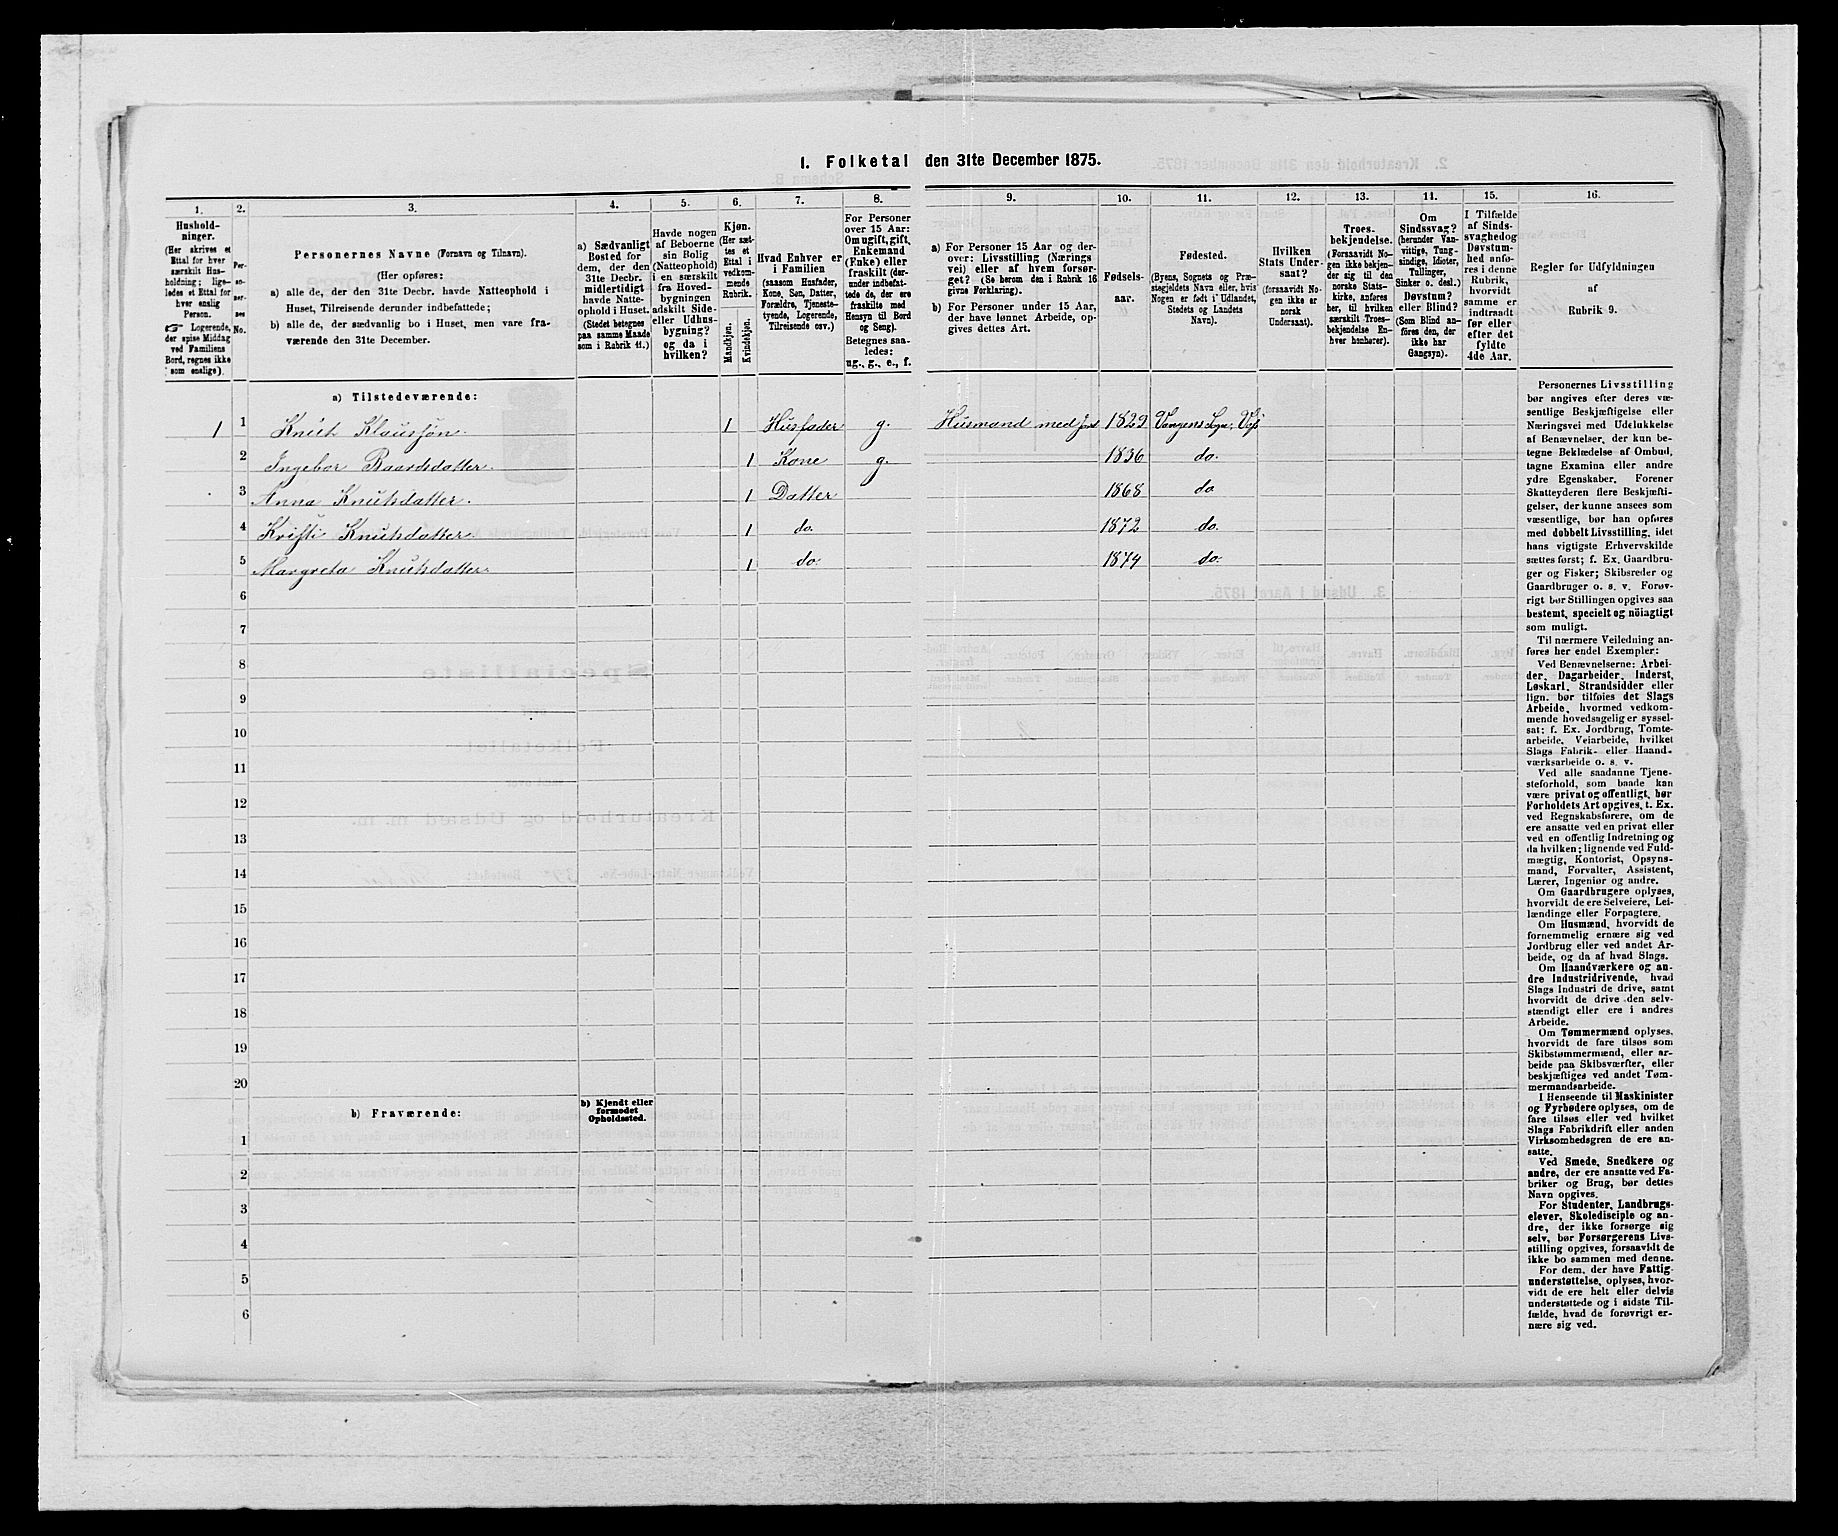 1. Folketal den 31te December 1875.
1.
Hushold-
ninger.
(Her skrives et
Ettal for hver
særskilt Hus-
holdning; lige-
ledes et Ettal for
hver enslig
Person.
☞ Logerende,
der spise Middag
ved Familiens
Bord, regnes ikke
som enslige).
2.
Per-
so-
ner-
nes
No.
3.
Personernes Navne (Fornavn og Tilnavn).
(Her opføres:
a) alle de, der den 31te Decbr. havde Natteophold i
Huset, Tilreisende derunder indbefattede;
b) alle de, der sædvanlig bo i Huset, men vare fra-
værende den 31te December.
4.
a) Sædvanligt
Bosted for
dem, der den
31te Decbr.
midlertidigt
havde Natte-
ophold i Huset.
(Stedet betegnes
paa samme Maade
som i Rubrik 11.)
5.
Havde nogen
af Beboerne
sin Bolig
(Natteophold)
i en særskilt
fra Hoved-
bygningen
adskilt Side-
eller Udhus-
bygning?
og da i
hvilken?
6.
Kjøn.
(Her sæt-
tes et
Ettal i
vedkom-
mende
Rubrik.
Mandkjøn.
Kvindekjøn.
7.
Hvad Enhver er
i Familien
(saasom Husfader,
Kone, Søn, Datter,
Forældre, Tjeneste-
tyende, Logerende,
Tilreisende osv.)
8.
For Personer
over 15 Aar:
Om ugift, gift,
Enkemand
(Enke) eller
fraskilt (der-
under indbefat-
tede de, der ere
fraskilte med
Hensyn til Bord
og Seng).
Betegnes saa-
ledes:
ug., g., e., f.
9.
a) For Personer 15 Aar og der-
over: Livsstilling (Nærings
vei) eller af hvem forsør-
get? (Se herom den i Rubrik 16
givne Forklaring).
b) For Personer under 15 Aar,
der have lønnet Arbeide, op-
gives dettes Art.
10.
Fødsels-
aar.
11.
Fødested.
(Byens, Sognets og Præ-
stegjeldets Navn eller, hvis
Nogen er født i Udlandet,
Stedets og Landets
Navn).
12.
Hvilken
Stats Under-
saat?
(forsaavidt No-
gen ikke er
norsk
Undersaat).
13.
Troes-
bekjendelse.
(Forsaavidt No-
gen ikke bekjen-
der sig til den
norske Stats-
kirke, anføres
her, til hvilken
særskilt Troes-
bekjendelse En-
hver henhører).
14.
Om
Sindssvag?
(herunder Van-
vittige, Tung-
sindige, Idioter,
Tallinger,
Sinker o. desl.)
Døvstum?
eller Blind?
(Som Blind an-
føres den, der
ikke har
Gangsyn).
15.
I Tilfælde
af Sinds-
svaghed og
Døvstum-
hed anfø-
res i denne
Rubrik,
hvorvidt
samme er
indtraadt
før eller
efter det
fyldte
4de Aar.
16.
Regler for Udfyldningen
af
Rubrik 9.
a) Tilstedeværende:
1 1 Knut Klausson. 1 Husfader g. Husmand med Jord 1829 Vangens Sogn, Vos
2 Ingebor Baardsdatter. 1 Kone g. 1836 do.
3 Anna Knutsdatter. 1 Datter 1868 do
4 Kristi Knutsdatter. 1 do. 1872 do.
5 Margreta Knutsdatter. 1 do. 1874 do.
6
7
8
9
10
11
12
13
14
15
16
17
18
19
20
b) Fraværende:
b) Kjendt eller
formodet
Opholdssted.
1
2
3
4
5
6
Personernes Livsstilling
bør angives efter deres væ-
sentlige Beskjæftigelse eller
Næringsvei med Udelukkelse
af Benævnelser, der kun be-
tegne Beklædelse af Ombud,
tagne Examina eller andre
ydre Egenskaber. Forener
Skatteyderen flere Beskjæfti-
gelser, der kunne ansees som
væsentlige, bør han opføres
med dobbelt Livsstilling, idet
hans vigtigste Erhvervskilde
sættes først; f. Ex. Gaardbru-
ger og Fisker; Skibsreder og
Gaardbruger o. s. v. Forøv-
rigt bør Stillingen opgives saa
bestemt, specielt og nöiagtigt
som muligt.
Til nærmere Veiledning an-
føres her endel Exempler:
Ved Benævnelserne: Arbei-
der, Dagarbeider, Inderst,
Løskarl, Strandsidder eller
lign. bør tilføies det Slags
Arbeide, hvormed vedkom-
mende hovedsagelig er syssel-
sat; f. Ex. Jordbrug, Tomte-
arbeide, Veiarbeide, hvilket
Slags Fabrik- eller Haand-
værksarbeide o. s. v.
Ved alle saadanne Tjene-
steforhold, som baade kan
være privat og offentligt, bør
Forholdets Art opgives, t. Ex.
ved Regnskabsførere, om de
ere ansatte ved en privat eller
ved en offentlig Indretning og
da hvilken; lignende ved Fuld-
mægtig, Kontorist, Opsyns-
mand, Forvalter, Assistent,
Lærer, Ingeniør og andre.
Om Gaardbrugere oplyses,
hvorvidt de ere Selveiere, Lei-
lændinge eller Forpagtere.
Om Husmænd, hvorvidt de
fornemmelig ernære sig ved
Jordbrug eller ved andet Ar-
beide, og da af hvad Slags.
Om Haandværkere og an-
dre Industridrivende, hvad
Slags Industri de drive, samt
hvorvidt de drive den selv-
stændigt eller ere i andres
Arbeide.
Om Tømmermænd oplyses,
hvorvidt de fare tilsøs som
Skibstømmermænd, eller ar-
beide paa Skibsværfter, eller
beskjæftiges ved andet Tøm-
mermandsarbeide.
I Henseende til Maskinister
og Fyrbødere oplyses, om de
fare tilsøs eller ved hvilket
Slags Fabrikdrift eller anden
Virksomhedsgren de ere an-
satte.
Ved Smede, Snedkere og
andre, der ere ansatte ved Fa-
briker og Brug, bør dettes
Navn opgives.
For Studenter, Landbrugs-
elever, Skoledisciple og an-
dre, der ikke forsørge sig
selv, bør Forsørgerens Livs-
stilling opgives, forsaavidt de
ikke bo sammen med denne.
For dem, der have Fattig-
understøttelse, oplyses, hvor-
vidt de ere helt eller delvis
understøttede og i sidste Til-
fælde, hvad de forøvrigt er-
nære sig ved.